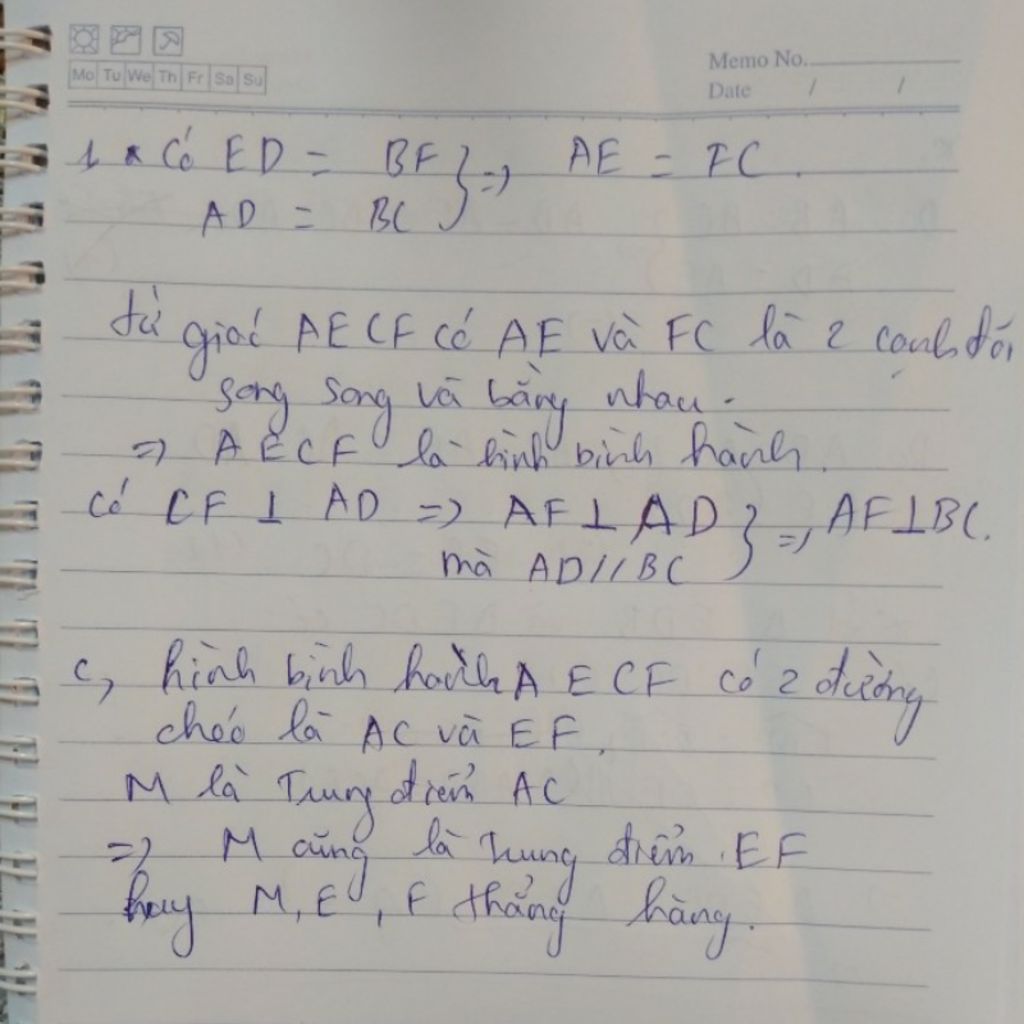 Mo Tu We Th Fr Sa Su
Memo No.
Date / /
1 * Có ED = BF } => AE = FC.
AD = BC
tứ giác AECF có AE và FC là 2 cạnh đối
song song và bằng nhau.
=> AECF là hình bình hành.
Có CF ⊥ AD => AF ⊥ AD } => AF ⊥ BC.
mà AD // BC
c, hình bình hành AECF có 2 đường
chéo là AC và EF.
M là Trung điểm AC
=> M cũng là trung điểm EF
hay M, E, F thẳng hàng.